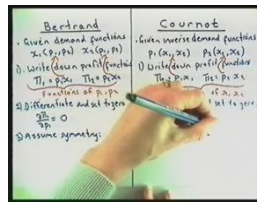 Bertrand
· Given demand functions
x₁(p₁,p₂) x₂(p₁,p₂)
1). Write down profit functions
Π₁ = p₁x₁ Π₂ = p₂x₂
Functions of p₁,p₂
2) Differentiate and set to zero
∂Π₁/∂p₁ = 0
3) Assume symmetry:
Cournot
· Given inverse demand functions
p₁(x₁,x₂) p₂(x₁,x₂)
1) Write down profit functions
Π₁ = p₁x₁ Π₂ = p₂x₂
of x₁ x₂
set to zero